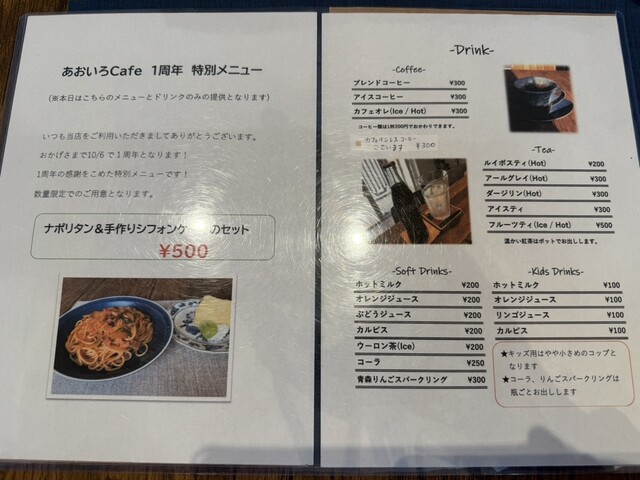 あおいろCafe 1周年 特別メニュー
(※本日はこちらのメニューとドリンクのみの提供となります)
いつも当店をご利用いただきましてありがとうございます。
おかげさまで10/6で1周年となります！
1周年の感謝をこめた特別メニューです！
数量限定でのご用意となります。
ナポリタン＆手作りシフォンケ のセット
¥500
-Drink-
-Coffee-
ブレンドコーヒー ¥300
アイスコーヒー ¥300
カフェオレ(Ice / Hot) ¥300
コーヒー類は1杯200円でおかわりできます。
カフェインレスコーヒー
ございます ¥300
-Tea-
ルイボスティ(Hot) ¥200
アールグレイ(Hot) ¥300
ダージリン(Hot) ¥300
アイスティ ¥300
フルーツティ(Ice / Hot) ¥500
温かい紅茶はポットでお出しします。
-Soft Drinks-
ホットミルク ¥200
オレンジジュース ¥200
ぶどうジュース ¥200
カルピス ¥200
ウーロン茶(Ice) ¥200
コーラ ¥250
青森りんごスパークリング ¥300
-Kids Drinks-
ホットミルク ¥100
オレンジジュース ¥100
リンゴジュース ¥100
カルピス ¥100
★キッズ用はやや小さめのコップと
なります
★コーラ、りんごスパークリングは
瓶ごとお出しします